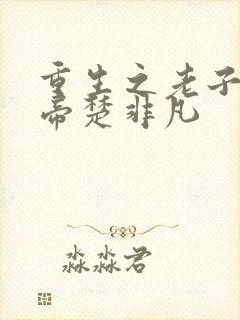 重生之老子
帝楚非凡
淼淼君